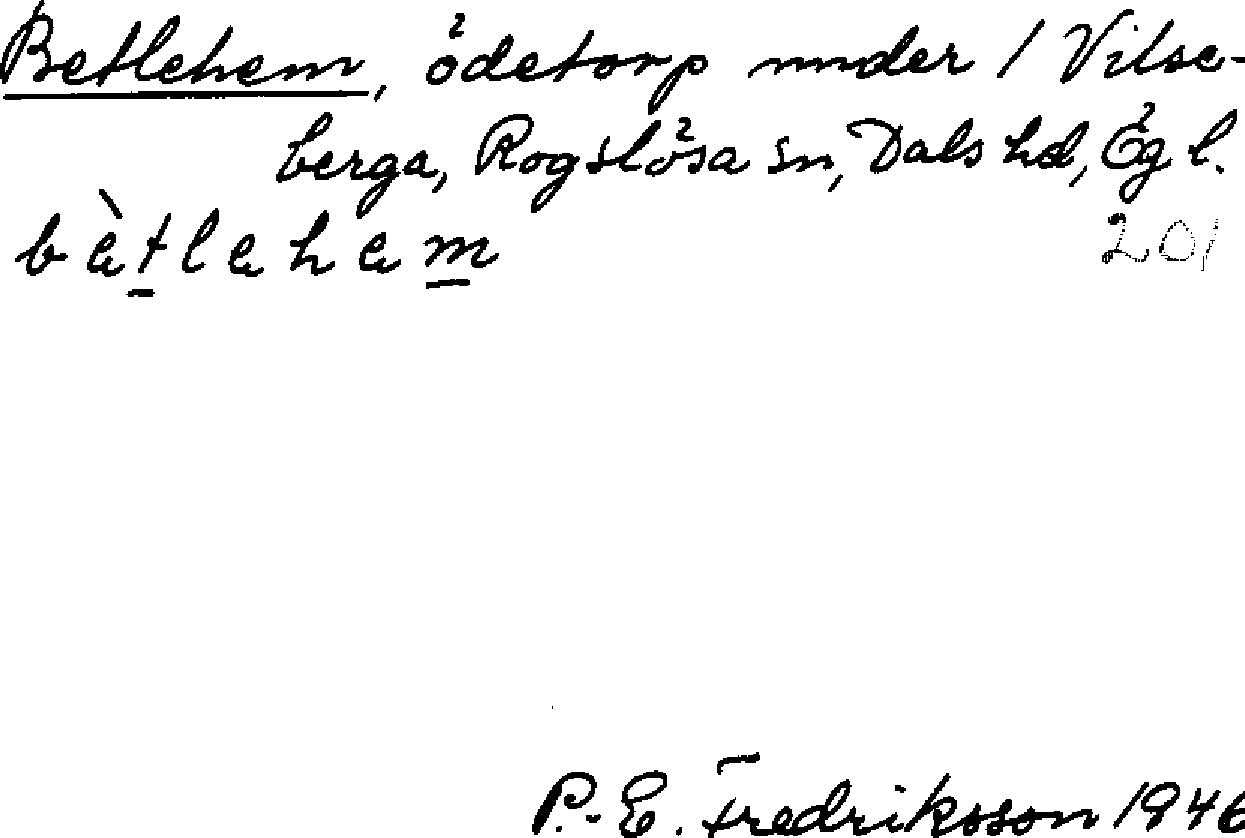 Betlehem, ödetorp under 1 Vilse-
berga, Rogslösa sn, Dals hd, Ögl.
bètlehem
201
P.-E. Fredriksson 1946